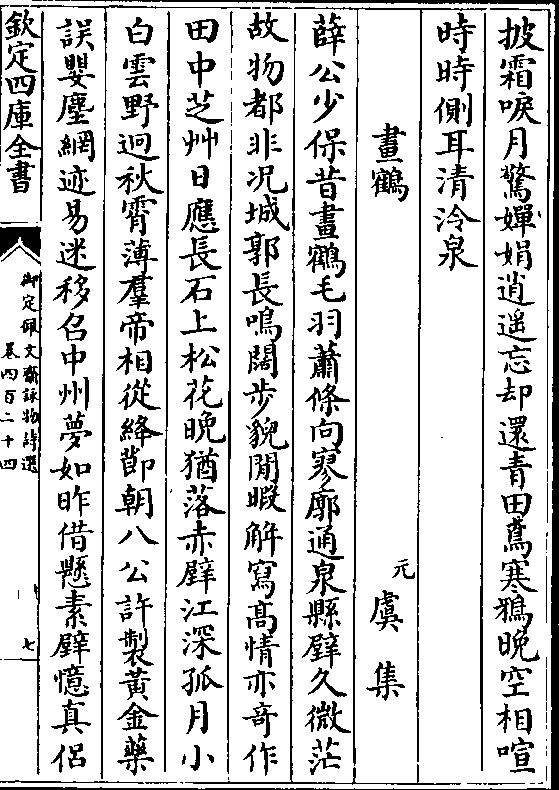 披霜唳月驚嬋娟逍遙忘却還青田鳶寒鴉晚空相喧
時時側耳清泠泉
畫鶴
元 虞集
薛公少保昔畫鶴毛羽蕭條向寥廓通泉縣壁久微茫
故物都非况城郭長鳴闊步貌閒暇解寫髙情亦竒作
田中芝艸日應長石上松花晚猶落赤壁江深孤月小
白雲野迥秋霄薄羣帝相從絳節朝八公許製黃金藥
誤嬰塵網迹易迷移召中州夢如昨借懸素壁憶真侣
欽定四庫全書
御定佩文齋詠物詩選
卷四百二十四
七